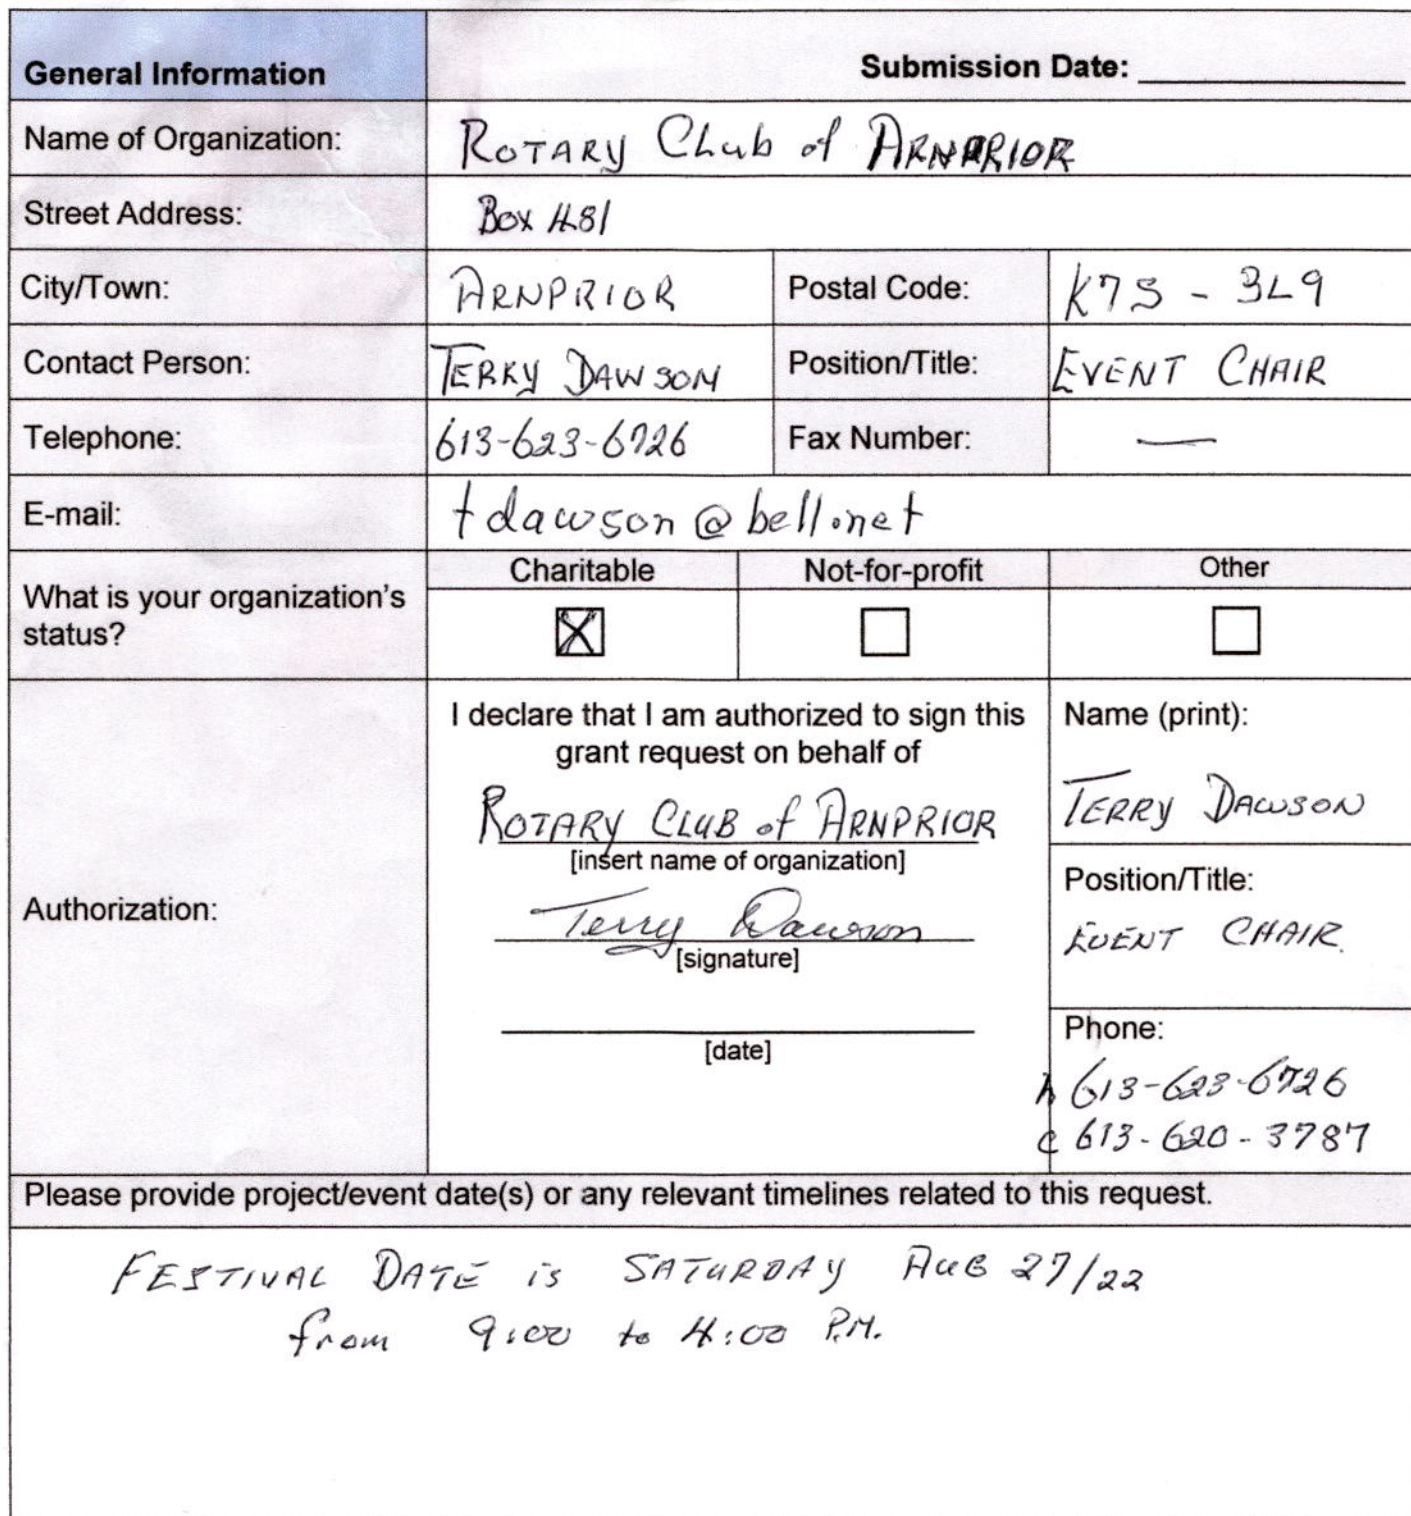 General Information
Submission Date:
Name of Organization: ROTARY Club of ARNPRIOR
Street Address: Box 481
City/Town: ARNPRIOR Postal Code: K7S - 3L9
Contact Person: TERRY DAWSON Position/Title: EVENT CHAIR
Telephone: 613-623-6726 Fax Number: —
E-mail: tdawson@bell.net
What is your organization's status?
Charitable Not-for-profit Other
I declare that I am authorized to sign this
grant request on behalf of
ROTARY CLUB of ARNPRIOR
[insert name of organization]
Authorization:
Terry Dawson
[signature]
[date]
Name (print):
TERRY DAWSON
Position/Title:
EVENT CHAIR.
Phone:
h 613-623-6726
c 613-620-3787
Please provide project/event date(s) or any relevant timelines related to this request.
FESTIVAL DATE is SATURDAY AUG 27/22
from 9:00 to 4:00 P.M.